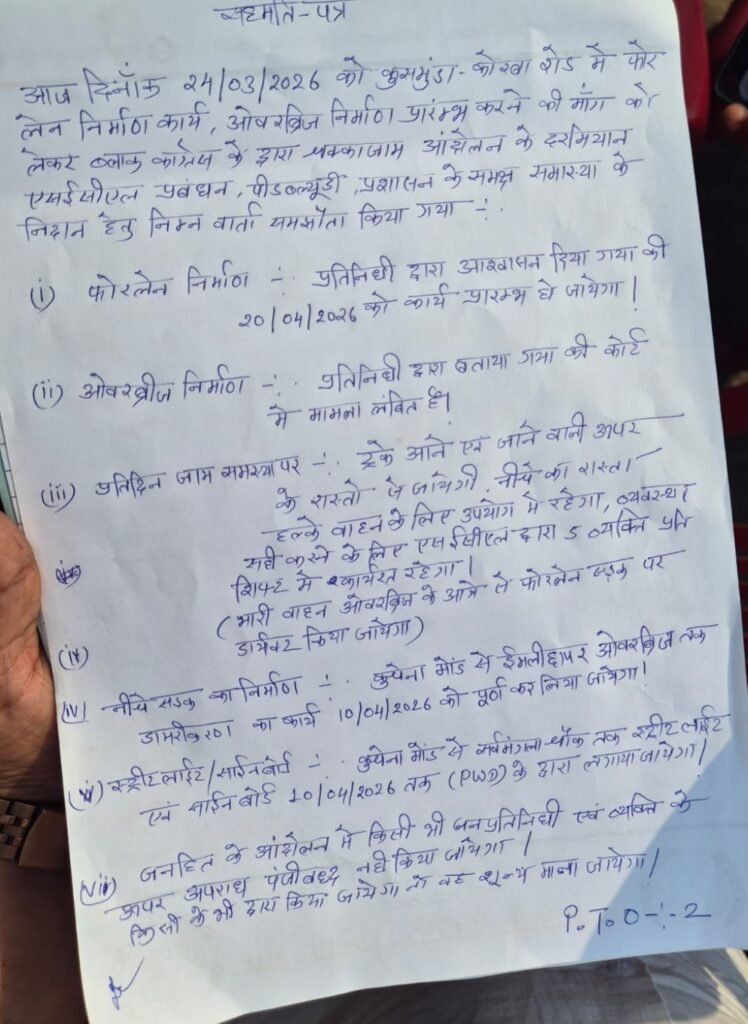 सहमति-पत्र
आज दिनाँक 24/03/2026 को कुसमुंडा-कोरबा रोड में फोर
लेन निर्माण कार्य, ओवरब्रिज निर्माण प्रारंभ करने की माँग को
लेकर ब्लाक कांग्रेस के द्वारा चक्काजाम आंदोलन के दरमियान
एसईसीएल प्रबंधन, पीडब्ल्यूडी, प्रशासन के समक्ष समास्या के
निदान हेतु निम्न वार्ता समझौता किया गया -:-
(i) फोरलेन निर्माण -:- प्रतिनिधी द्वारा आश्वासन दिया गया की
20/04/2026 को कार्य प्रारम्भ हो जायेगा।
(ii) ओवरब्रीज निर्माण -:- प्रतिनिधी द्वारा बताया गया की कोर्ट
मे मामला लंबित है।
(iii) प्रतिदिन जाम समस्या पर -:- ट्रके आने एवं जाने वाली ऊपर
के रास्तो से जायेगी, नीचे का रास्ता
हल्के वाहन के लिए उपयोग मे रहेगा, व्यवस्था
सही करने के लिए एसईसीएल द्वारा 5 व्यक्ति प्रति
शिफ्ट मे कार्यरत रहेगा।
(भारी वाहन ओवरब्रिज के आगे से फोरलेन सड़क पर
(iv) डायवर्ट किया जायेगा)
(iv) नीचे सड़क का निर्माण -:- कुचेना मोड से ईमलीछापर ओवरब्रिज तक
डामरीकरण का कार्य 10/04/2026 को पूर्ण कर लिया जायेगा।
(vi) स्ट्रीट लाईट/साईन बोर्ड -:- कुचेना मोड से सर्वमंगला चौक तक स्ट्रीट लाईट
एवं साईन बोर्ड 10/04/2026 तक (PWD) के द्वारा लगाया जायेगा।
(vii) जनहित के आंदोलन मे किसी भी जनप्रतिनिधी एवं व्यक्ति के
ऊपर अपराध पंजीबध्द नही किया जायेगा।
किसी के भी द्वारा किया जायेगा तो वह शून्य माना जायेगा।
P.T.O -:- 2